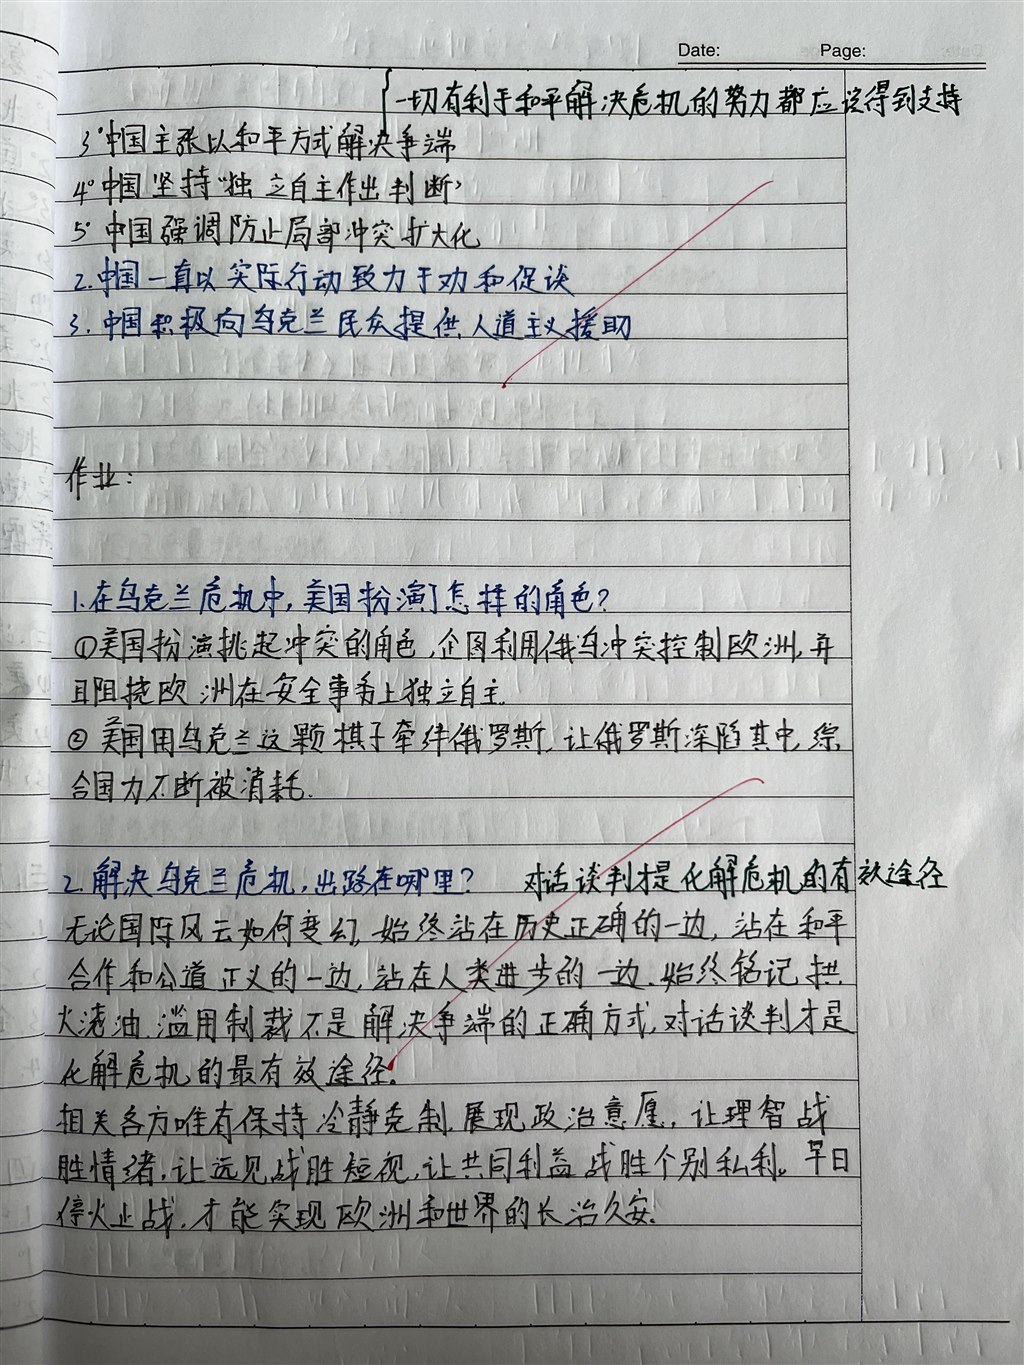 Date: Page:
一切有利于和平解决危机的努力都应该得到支持
3°中国主张以和平方式解决争端
4°中国坚持“独立自主作出判断”
5°中国强调防止局部冲突扩大化
2.中国一直以实际行动致力于劝和促谈
3.中国积极向乌克兰民众提供人道主义援助
作业:
1.在乌克兰危机中,美国扮演了怎样的角色?
①美国扮演挑起冲突的角色,企图利用俄乌冲突控制欧洲,并
且阻挠欧洲在安全事务上独立自主.
②美国用乌克兰这颗棋子牵绊俄罗斯,让俄罗斯深陷其中,综
合国力不断被消耗.
2.解决乌克兰危机,出路在哪里? 对话谈判才是化解危机的有效途径
无论国际风云如何变幻,始终站在历史正确的一边,站在和平
合作和公道正义的一边,站在人类进步的一边.始终铭记拱
火浇油.滥用制裁不是解决争端的正确方式,对话谈判才是
化解危机的最有效途径.
相关各方唯有保持冷静克制.展现政治意愿,让理智战
胜情绪,让远见战胜短视,让共同利益战胜个别私利。早日
停火止战.才能实现欧洲和世界的长治久安.